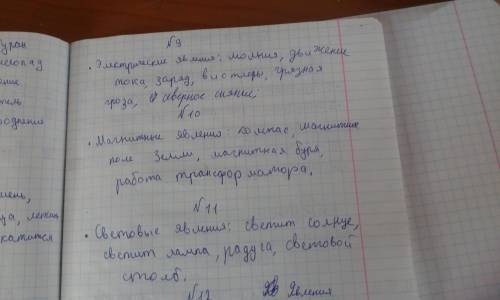 буран
№9
• Электрические явления: молния, движение
тока, заряд, выстлеры, грязная
гроза, северное сияние.
№10
• Магнитные явления: компас, магнитное
поле Земли, магнитная буря,
работа трансформатора.
№11
• Световые явления: светит солнце,
светит лампа, радуга, световой
столб.
№12 Явления
катится